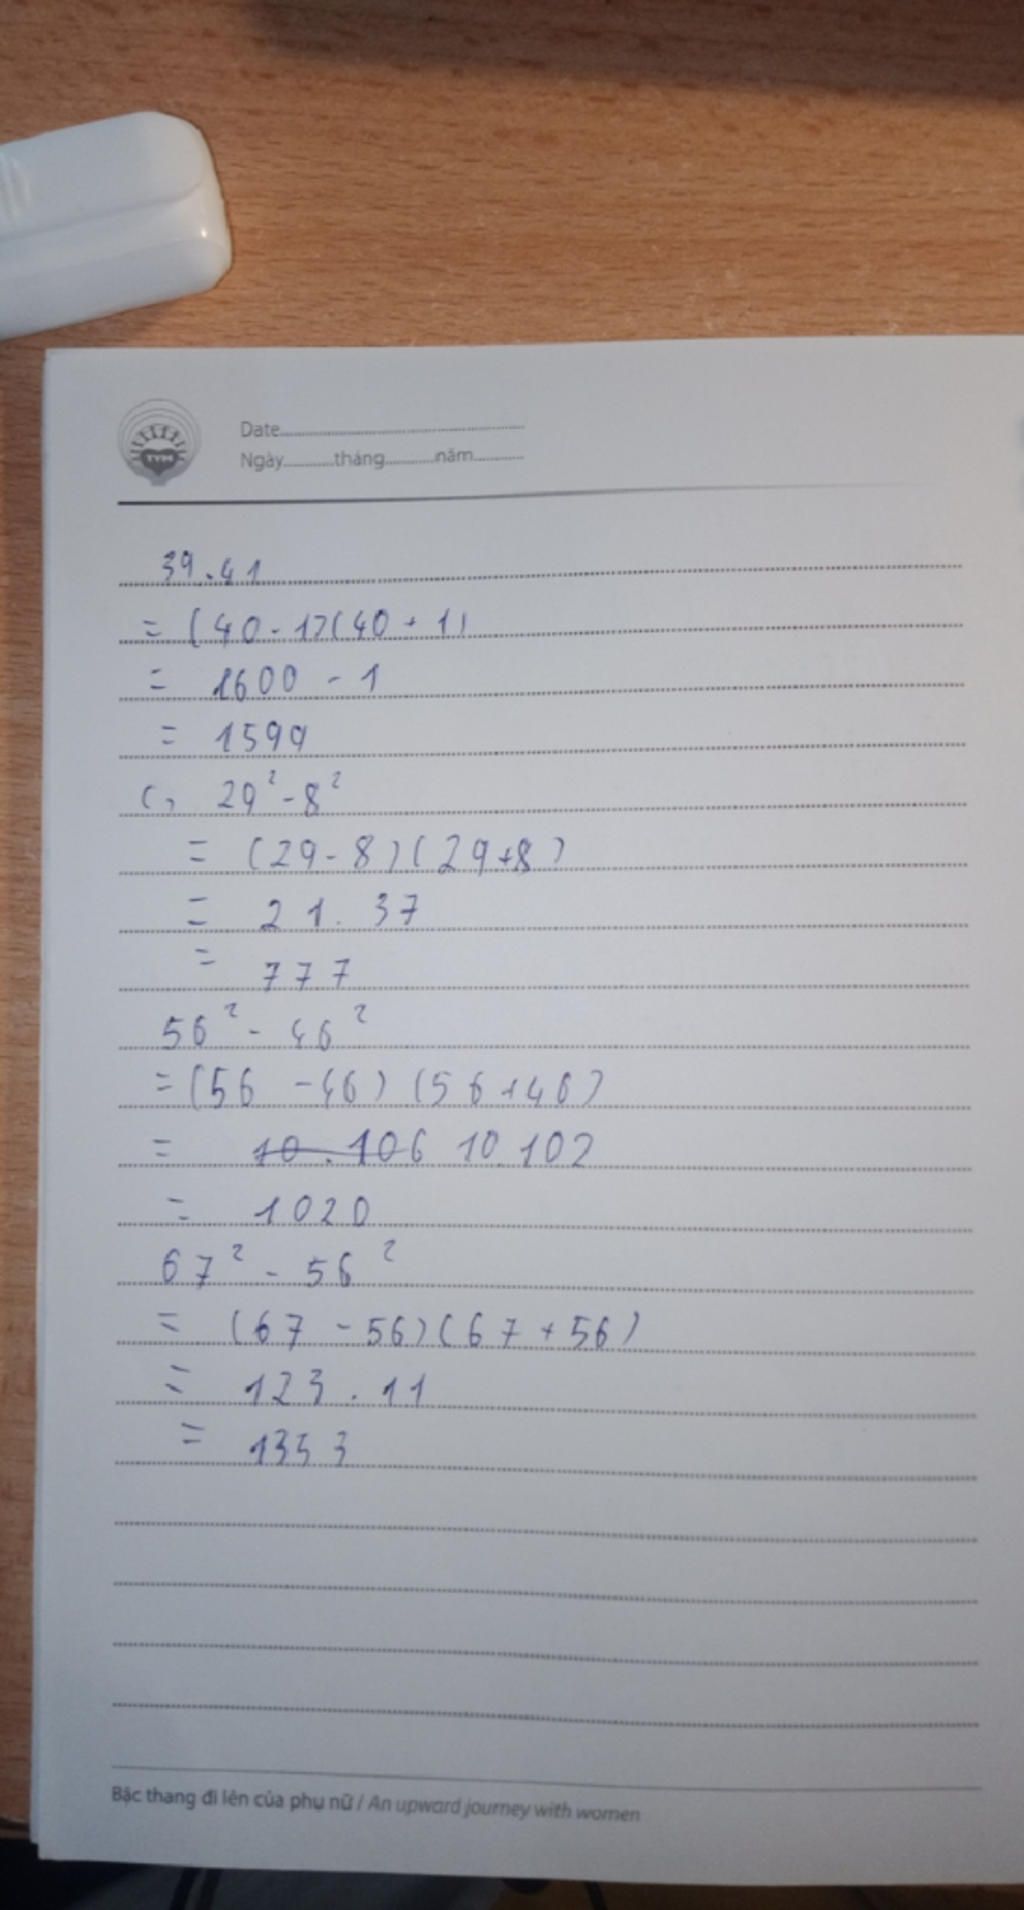 TYM
Date
Ngày tháng năm
39.41
= (40-1)(40+1)
= 1600 - 1
= 1599
c, 29² - 8²
= (29-8)(29+8)
= 21.37
= 777
56² - 46²
= (56 - 46) (56+46)
= 10.106 10.102
= 1020
67² - 56²
= (67 - 56)(67 + 56)
= 123.11
= 1353
Bậc thang đi lên của phụ nữ / An upward journey with women